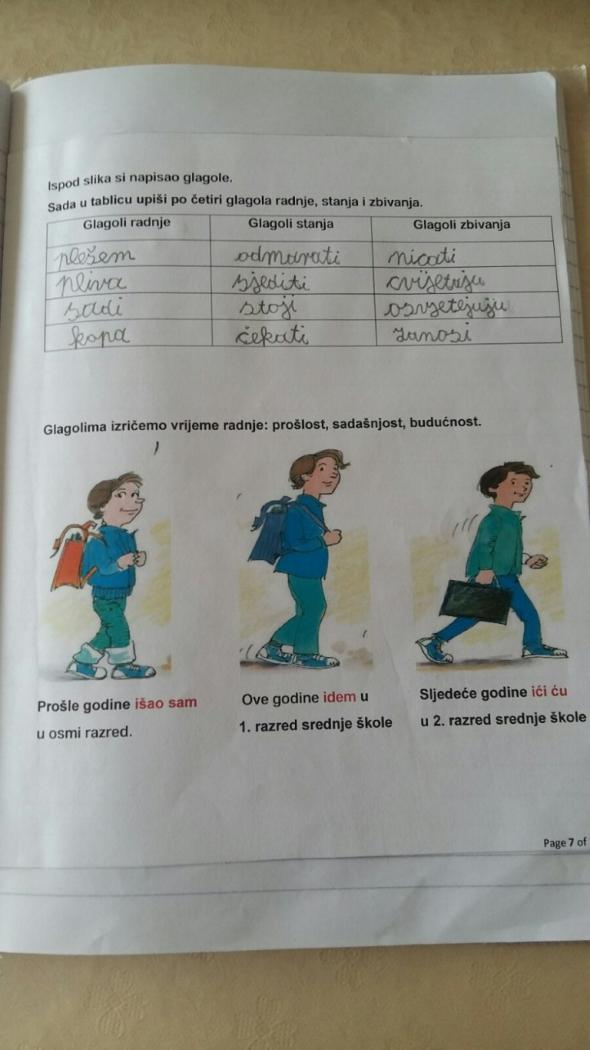 Ispod slika si napisao glagole.
Sada u tablicu upiši po četiri glagola radnje, stanja i zbivanja.
Glagoli radnje Glagoli stanja Glagoli zbivanja
plešem odmarati nicati
pliva sjediti cvijetaju
sadi stoji osvjetejuju
kopa čekati zanosi
Glagolima izričemo vrijeme radnje: prošlost, sadašnjost, budućnost.
Prošle godine išao sam
u osmi razred.
Ove godine idem u
1. razred srednje škole
Sljedeće godine ići ću
u 2. razred srednje škole
Page 7 of